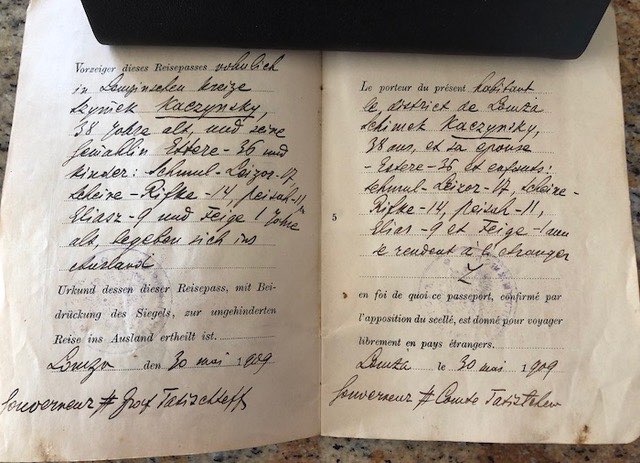 Vorzeiger dieses Reisepasses wohnlich
in Lomzinschen Kreize
Szymek Kaczynsky,
38 Jahre alt, und seine
Gemahlin Estere - 36 und
Kinder: Schmul-Leizor-17,
Scheine-Rifke-14, Peisah-11,
Eliasz-9 und Feige 1 Jahre
alt, begeben sich ins
Ausland
Urkund dessen dieser Reisepass, mit Bei-
drückung des Siegels, zur ungehinderten
Reise ins Ausland ertheilt ist.
Lomza den 30 mai 1909
Gouverneur # Graf Tatischtscheff
Le porteur du présent habitant
le district de Lomza
Schimek Kaczynsky,
38 ans, et sa epouse
- Estere - 36 et enfants:
Schmul-Leizor-17, Scheine-
Rifke-14, Peisah-11,
Elias-9 et Feige-1 ann
se rendent a l'etranger
5
en foi de quoi ce passeport, confirmé par
l'apposition du scellé, est donné pour voyager
librement en pays étrangers.
Lomza le 30 mai 1909
Gouverneur # Comte